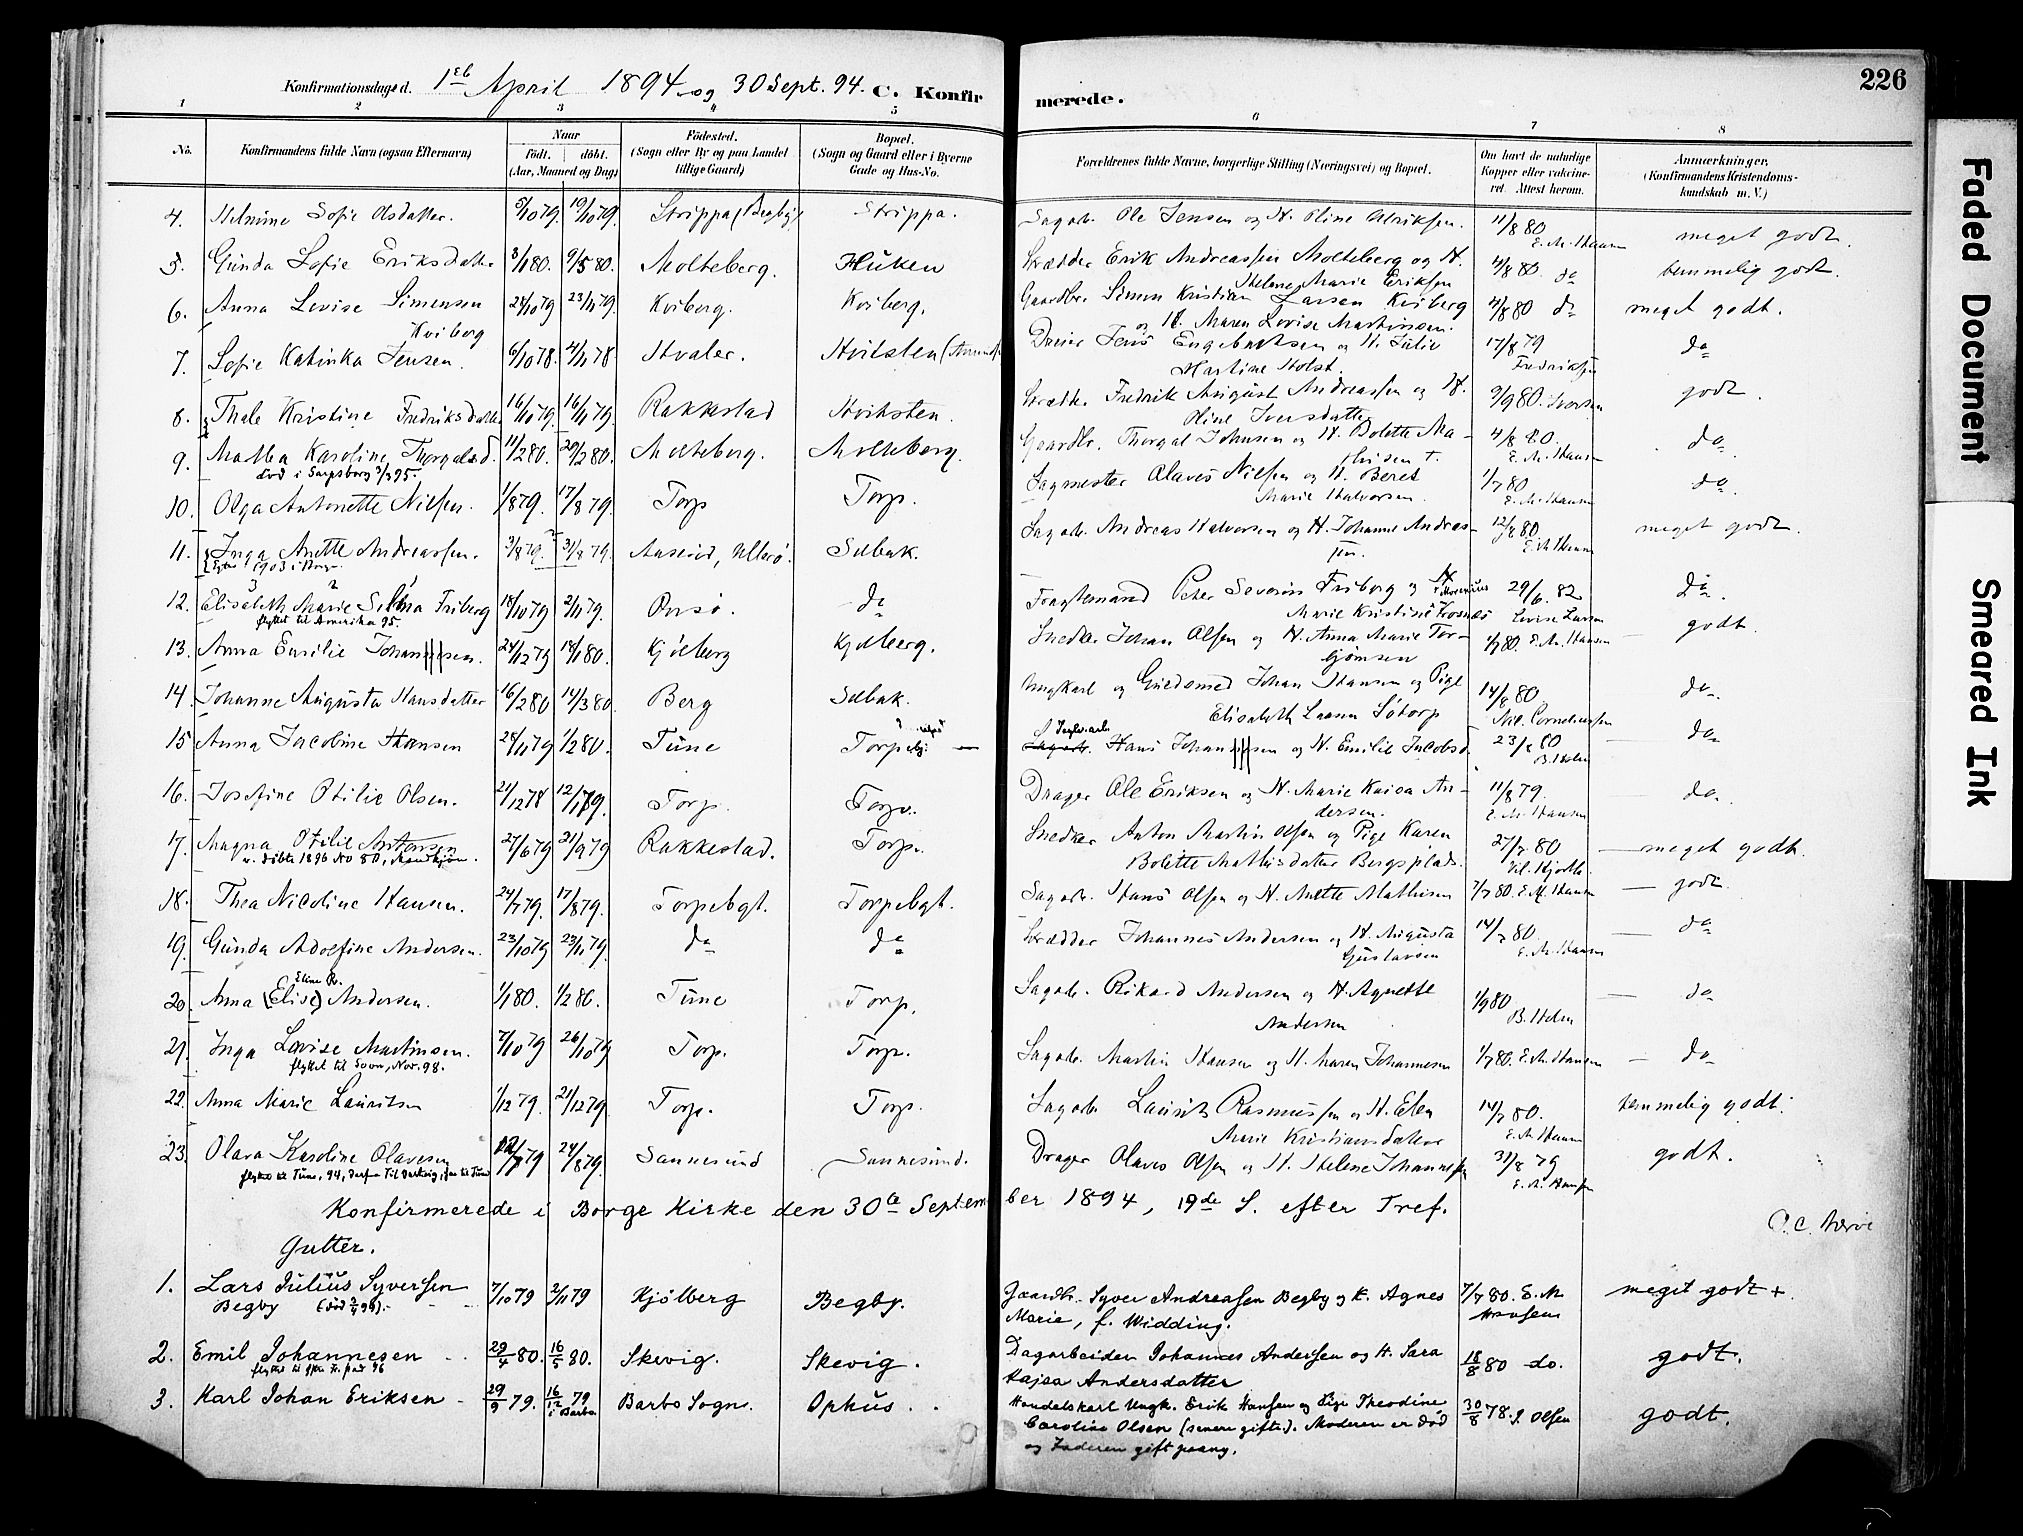 Konfirmationsdage d. 1ste April 1894 og 30 Sept. 94. C. Konfirmerede. 226
1 2 3 4 5 6 7 8
No. Konfirmandens fulde Navn (ogsaa Efternavn) Naar født. døbt. (Aar, Maaned og Dag) Fødested. (Sogn eller By og paa Landet tillige Gaard) Bopæl. (Sogn og Gaard eller i Byerne Gade og Hus-No. Forældrenes fulde Navne, borgerlige Stilling (Næringsvei) og Bopæl. Om havt de naturlige Kopper eller vaccineret. Attest herom. Anmærkninger, (Konfirmandens Kristendomskundskab m. V.)
4. Helmine Sofie Olsdatter. 5/10 79. 19/10 79. Strippa (Begby) Strippa. Sagarb. Ole Jensen og H. Oline Ulriksen. 11/8 80 E. M. Hansen meget godt.
5. Gunda Sofie Eriksdatter 3/1 80. 9/5 80. Molteberg. Huken Skrædder Erik Andreassen Molteberg og H. Helene Marie Eriksen 4/8 80. do temmelig godt.
6. Anna Lovise Simensen Kviberg 24/10 79 23/11 79. Kviberg. Kviberg. Gaardbr. Simen Kristian Larsen Kviberg og H. Maren Lovise Martinsen. 4/8 80 do meget godt.
7. Sofie Katinka Jensen. 6/10 78. 4/11 78 Hvaler. Hvitsten Dreier Jens Engebretsen og H. Julie Martine Holst. 17/8 79 do
8. Thale Kristine Fredriksdatter 16/10 79. 16/11 79. Rakkestad Hvitsten. Skrædder Fredrik August Andreassen og H. Oline Iversdatter 9/9 80. Iversen godt.
9. Matha Karoline Thorgalsd. 11/2 80. 20/2 80. Molteberg. Molteberg. Gaardbr. Thorgal Johnsen og H. Bolette Mathisen †. 4/8 80. E. M. Hansen do.
død i Sarpsborg 3/3 95.
10. Olga Antonette Nilsen. 1/8 79. 17/8 79. Torp Torp. Sagmester Olaves Nilsen og H. Beret Marie Halvorsen. 1/7 80 E. M. Hansen do.
11. Inga Anette Andreassen. 3/8 79. 31/8 79. Selbak. Sagarb. Andreas Halvorsen og H. Johanne Andreassen. 12/7 80. E. M. Hansen meget godt.
12. Elisabeth Marie Selma Friberg 18/10 79 2/11 79. Onsø. do Fragtemand Peter Severin Friberg og H. Marie Kristine 29/6. 82 Lovise Larsen do.
flyttet til Amerika 95.
13. Anna Emilie Johannesen. 24/12 79 18/1 80. Kjølberg Kjølberg. Snedker Johan Olsen og H. Anna Marie Torbjørnsen 1/7 80. E. M. Hansen godt.
14. Johanne Augusta Hansdatter 16/2 80 14/3 80. Berg Selbak. Ungkarl og Johan Hansen og Pige Elisabeth Larsen 14/8 80 Nil. Corneliussen do.
15 Anna Jacobine Hansen 28/11 79 1/2 80. Tune Torpebg. Sagarb. Hans Johannesen og H. Emilie Jacobsd. 23/8 80 B. Holm do
16. Josefine Otilie Olsen. 21/12 78 12/1 79. Torp. Torp. Drager Ole Eriksen og H. Marie Kaisa Andersen. 11/8 79. E. M. Hansen do.
17. Magna Otilie Antonsen 27/6 79 21/9 79 Rakkestad. Torp. Snedker Anton Martin Olsen og Pige Karen Bolette Mathisdatter Bergsplads. 27/7 80 meget godt.
v. døbte 1896 No 80, Mandkjøn.
18. Thea Nicoline Hansen. 24/7 79. 17/8 79. Torpebgt. Torpebgt. Sagarb. Hans Olsen og H. Anette Mathisen 7/7 80. E. M. Hansen godt.
19. Gunda Adolfine Andersen. 23/10 79 23/11 79. do do Skrædder Johannes Andersen og H. Augusta Gustavsen 14/7 80. E. M. Hansen do
20. Anna (Elise) Eline R. Andersen. 1/1 80. 1/2 80. Tune Torp. Sagarb. Rikard Andersen og H. Agnette Andersen 1/9 80 B. Holm do
21. Inga Lovise Martinsen. 7/10 79 26/10 79 Torp. Torp. Sagarb. Martin Hansen og H. Maren Johannesen 1/7 80. E. M. Hansen do
flyttet til Nov. 98.
22. Anna Marie Lauritsen 1/12 79. 21/12 79. Torp. Torp. Sagarb. Laurits Rasmussen og H. Elen Marie Kristiansdatter 14/7 80. E. M. Hansen temmelig godt.
23. Olava Karoline Olavesen 24/8 79. Sannesund Sannesund. Drager Olaves Olsen og H. Helene Johannessen 31/8 79 E. M. Hansen godt.
flyttet til Tune, 94,
Konfirmerede i Borge Kirke den 30te September 1894, 19de S. efter Tref.
O.C.
Gutter.
1. Lars Julius Syversen Begby 7/10 79 2/11 79 Kjølberg Begby. Gaardbr. Syver Andreassen Begby og H. Agnes Marie, f. Widding. 7/7 80. E. M. Hansen meget godt +
2. Emil Johannesen 29/4 80. 16/5 80. Skevig. Skevig. Dagarbeider Johannes Andersen og H. Sara Kajsa Andersdatter 18/8 80 do. godt.
3. Karl Johan Eriksen 29/9 79. 16/12 79 i Barbo Barbo Sogn. Ophus. Handelskarl Ungk. Erik Hansen og Pige Theodine Caroline Olsen (senere gifte). Moderen er død og Faderen gift paany. 30/8 78. J. Olsen godt.
Faded Document
Smeared Ink